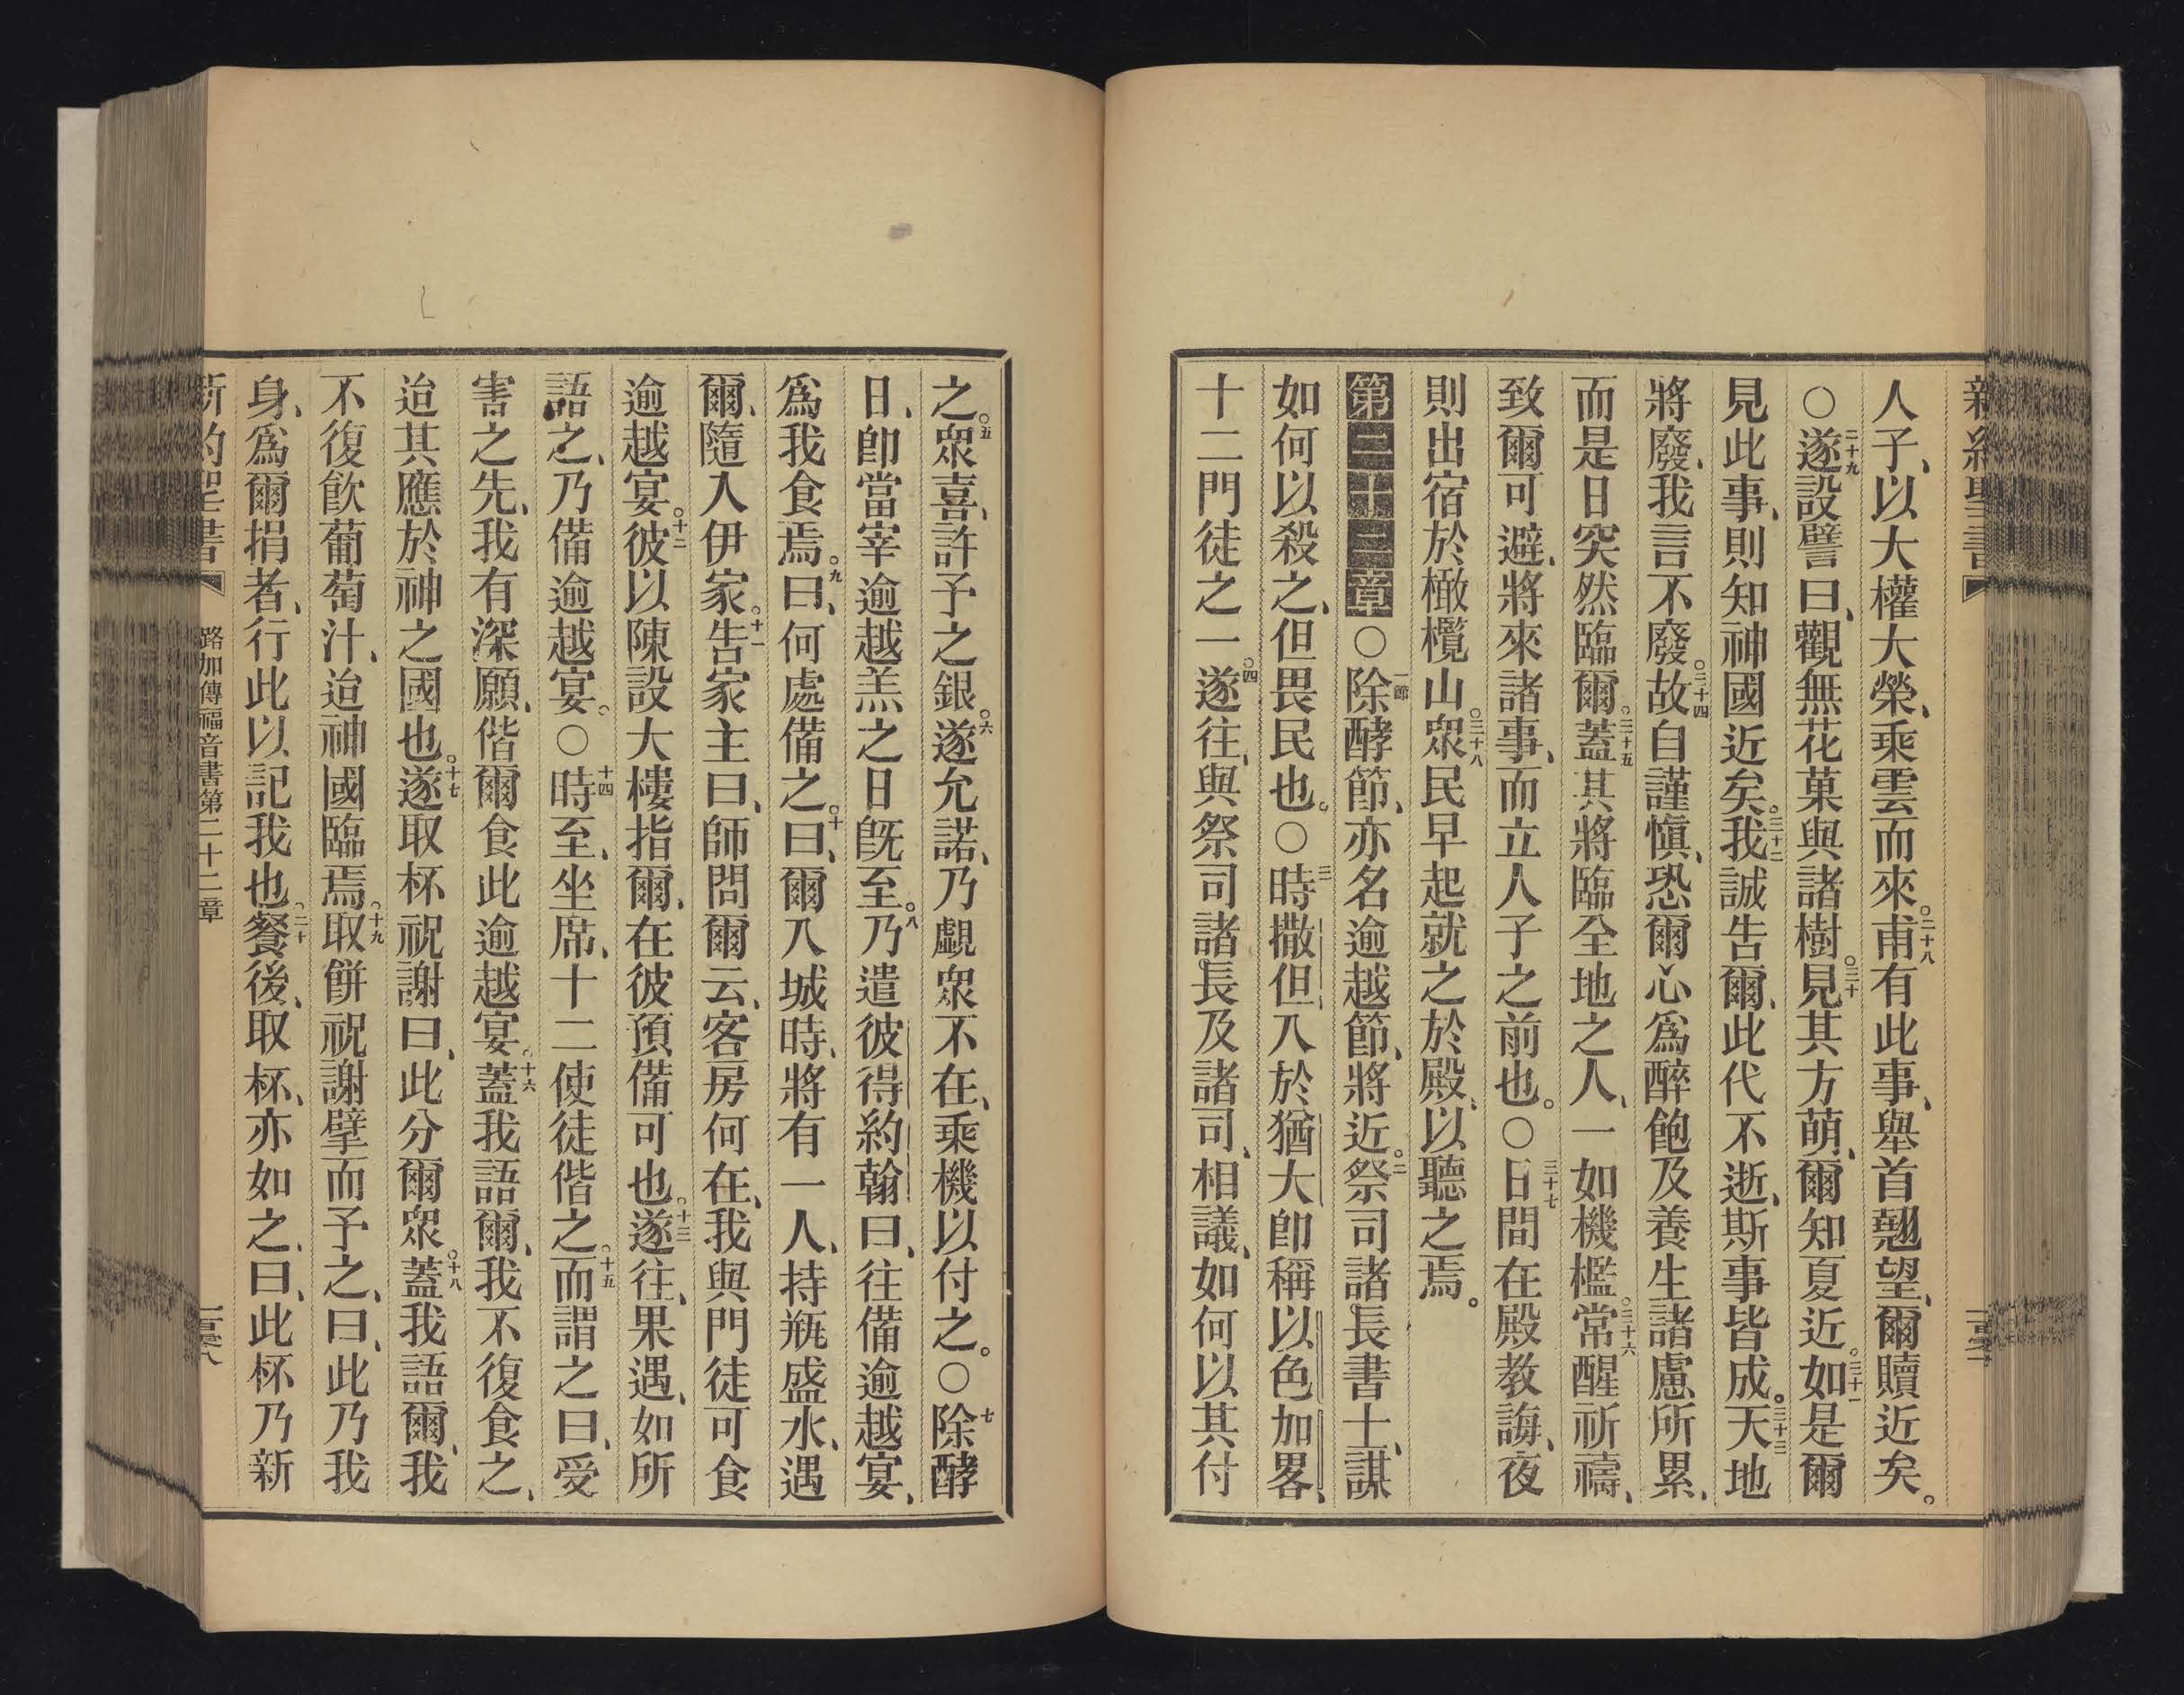 人子、以大權大榮、乘雲而來。二十八甫有此事、舉首翹望、爾贖近矣。
○二十九遂設譬曰、觀無花菓與諸樹。三十見其方萌、爾知夏近。三十一如是爾
見此事、則知神國近矣。三十二我誠告爾、此代不逝、斯事皆成。三十三天地
將廢、我言不廢。三十四故自謹愼、恐爾心爲醉飽及養生諸慮所累、
而是日突然臨爾。三十五蓋其將臨全地之人、一如機檻。三十六常醒祈禱、
致爾可避、將來諸事、而立人子之前也。○三十七日間在殿教誨、夜
則出宿於橄欖山。三十八衆民早起就之於殿、以聽之焉。
第二十二章○一節除酵節、亦名逾越節、將近。二祭司諸長書士、謀
如何以殺之、但畏民也。○三時撒但、入於猶大卽稱以色加畧、
十二門徒之一。四遂往、與祭司諸長及諸司、相議、如何以其付
之。五衆喜、許予之銀。六遂允諾、乃覷衆不在、乘機以付之。○七除酵
日、卽當宰逾越羔之日旣至。八乃遣彼得約翰曰、往備逾越宴、
爲我食焉。九曰、何處備之。十曰、爾入城時、將有一人、持瓶盛水、遇
爾、隨入伊家。十一告家主曰、師問爾云、客房何在、我與門徒可食
逾越宴。十二彼以陳設大樓指爾、在彼預備可也。十三遂往、果遇、如所
語之、乃備逾越宴。○十四時至、坐席、十二使徒偕之。十五而謂之曰、愛
害之先、我有深願、偕爾食此逾越宴。十六蓋我語爾、我不復食之、
迨其應於神之國也。十七遂取杯祝謝曰、此分爾衆。十八蓋我語爾、我
不復飮葡萄汁、迨神國臨焉。十九取餅祝謝擘而予之、曰、此乃我
身、爲爾捐者、行此以記我也。二十餐後、取杯、亦如之、曰、此杯乃新
新約聖書 路加傳福音書第二十二章